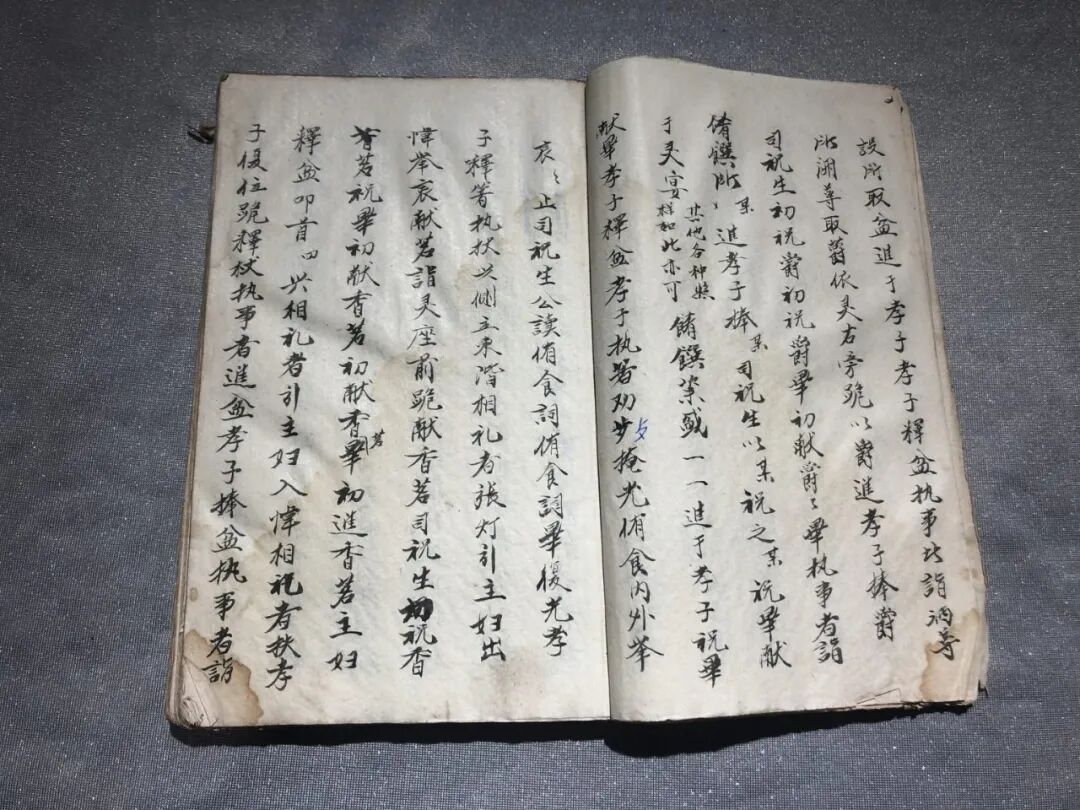 設所取盆進于孝子孝子釋盆执事者詣酒尊
所溯尊取爵依灵右旁跪以爵進孝子捧爵
司祝生初祝爵初祝爵畢初献爵〻畢执事者詣
餚饌所某進孝子捧某司祝生以某祝之某祝畢献
于灵宴其他各种照样如此亦可餚饌粢盛一一進于孝子祝畢
献畢孝子釋盆孝子执箸劝步掩光侑食内外举
哀〻止司祝生公读侑食詞侑食詞畢復光孝
子釋箸执杖兴側立東階相礼者張灯引主妇出
幃举哀献茗詣灵座前跪献香茗司祝生初祝香
茗祝畢初献香茗初献香茗畢初進香茗主妇
釋盆叩首四兴相礼者引主妇入幃相礼者扶孝
子復位跪釋杖执事者進盆孝子捧盆执事者詣